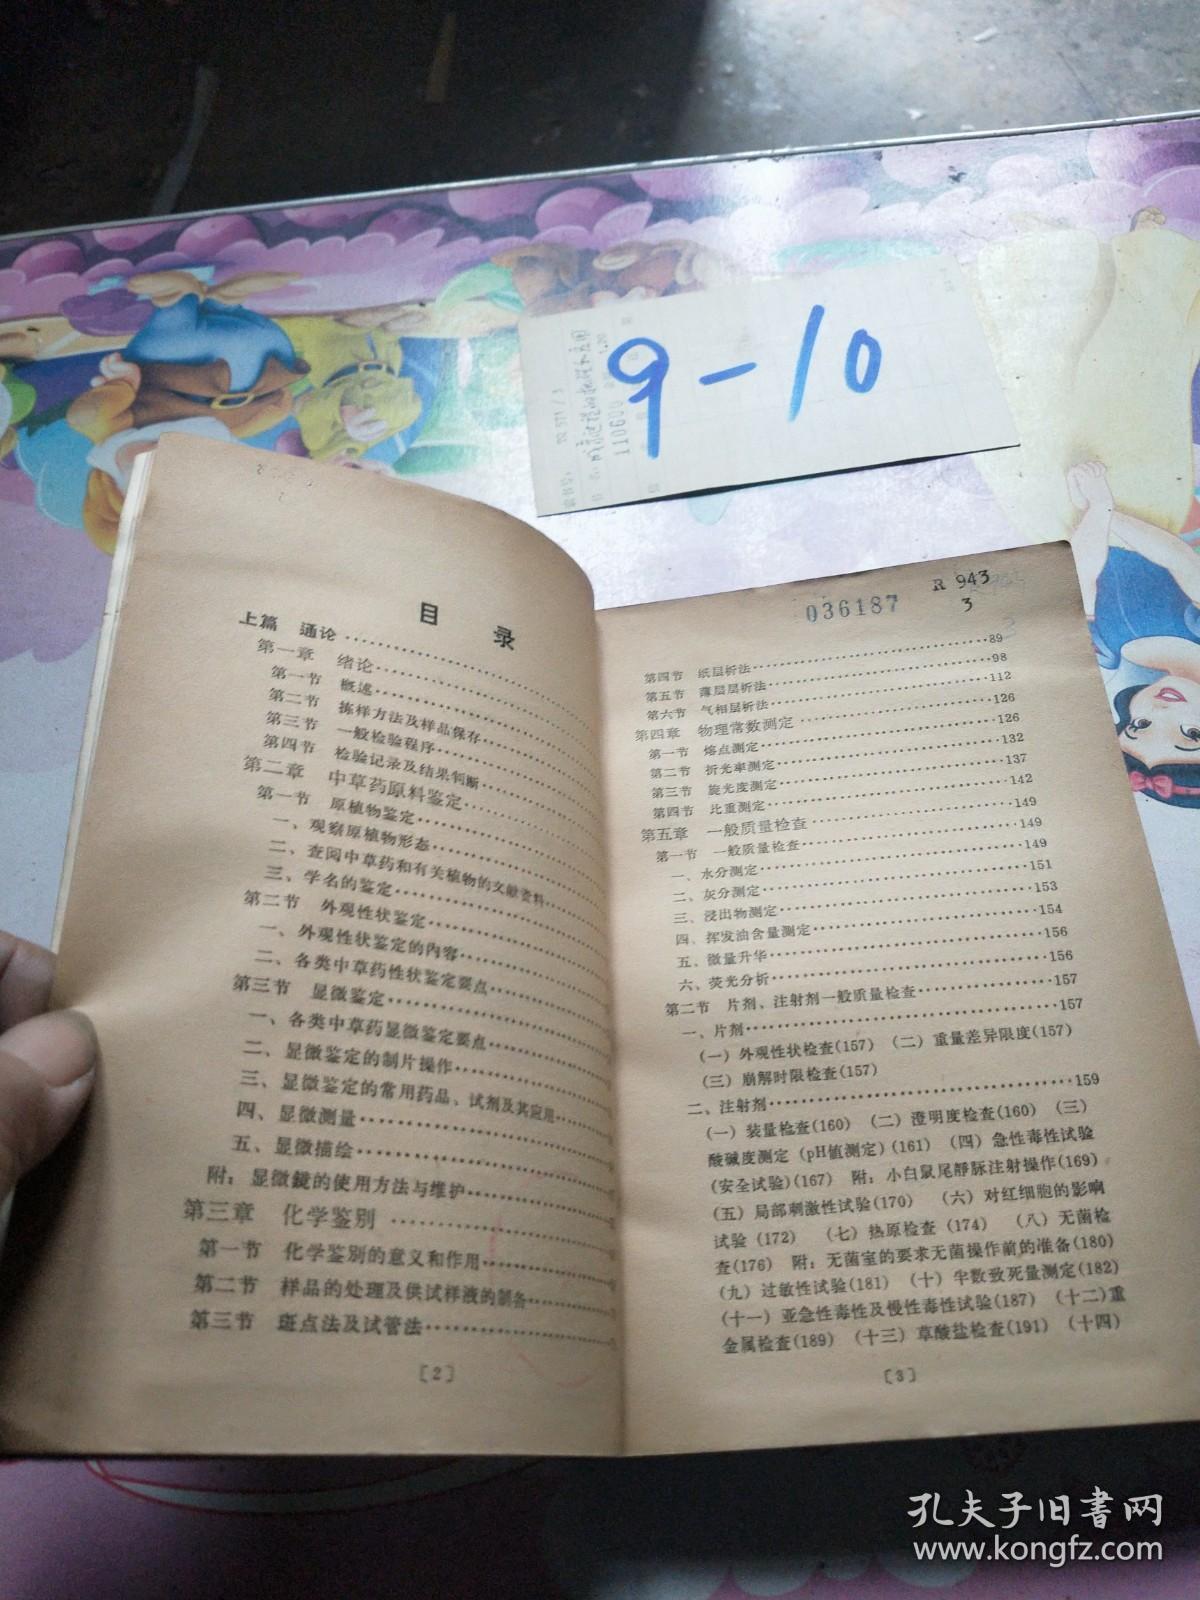 9-10
110600
1.20
目 录
上篇 通论
第一章 绪论
第一节 概述
第二节 拣样方法及样品保存
第三节 一般检验程序
第四节 检验记录及结果判断
第二章 中草药原料鉴定
第一节 原植物鉴定
一、观察原植物形态
二、查阅中草药和有关植物的文献资料
三、学名的鉴定
第二节 外观性状鉴定
一、外观性状鉴定的内容
二、各类中草药性状鉴定要点
第三节 显微鉴定
一、各类中草药显微鉴定要点
二、显微鉴定的制片操作
三、显微鉴定的常用药品、试剂及其应用
四、显微测量
五、显微描绘
附：显微镜的使用方法与维护
第三章 化学鉴别
第一节 化学鉴别的意义和作用
第二节 样品的处理及供试样液的制备
第三节 斑点法及试管法
〔2〕
036187
R 943
3
第四节 纸层析法 89
第五节 薄层层析法 98
第六节 气相层析法 112
第四章 物理常数测定 126
第一节 熔点测定 126
第二节 折光率测定 132
第三节 旋光度测定 137
第四节 比重测定 142
第五章 一般质量检查 149
第一节 一般质量检查 149
一、水分测定 149
二、灰分测定 151
三、浸出物测定 153
四、挥发油含量测定 154
五、微量升华 156
六、荧光分析 156
第二节 片剂、注射剂一般质量检查 157
一、片剂 157
(一) 外观性状检查(157) (二) 重量差异限度(157)
(三) 崩解时限检查(157)
二、注射剂 159
(一) 装量检查(160) (二) 澄明度检查(160) (三)
酸碱度测定 (pH值测定)(161) (四) 急性毒性试验
(安全试验)(167) 附：小白鼠尾静脉注射操作(169)
(五) 局部刺激性试验(170) (六) 对红细胞的影响
试验 (172) (七) 热原检查 (174) (八) 无菌检
查(176) 附：无菌室的要求无菌操作前的准备(180)
(九) 过敏性试验(181) (十) 半数致死量测定(182)
(十一) 亚急性毒性及慢性毒性试验(187) (十二)重
金属检查(189) (十三) 草酸盐检查(191) (十四)
〔3〕
孔夫子旧書网
www.kongfz.com